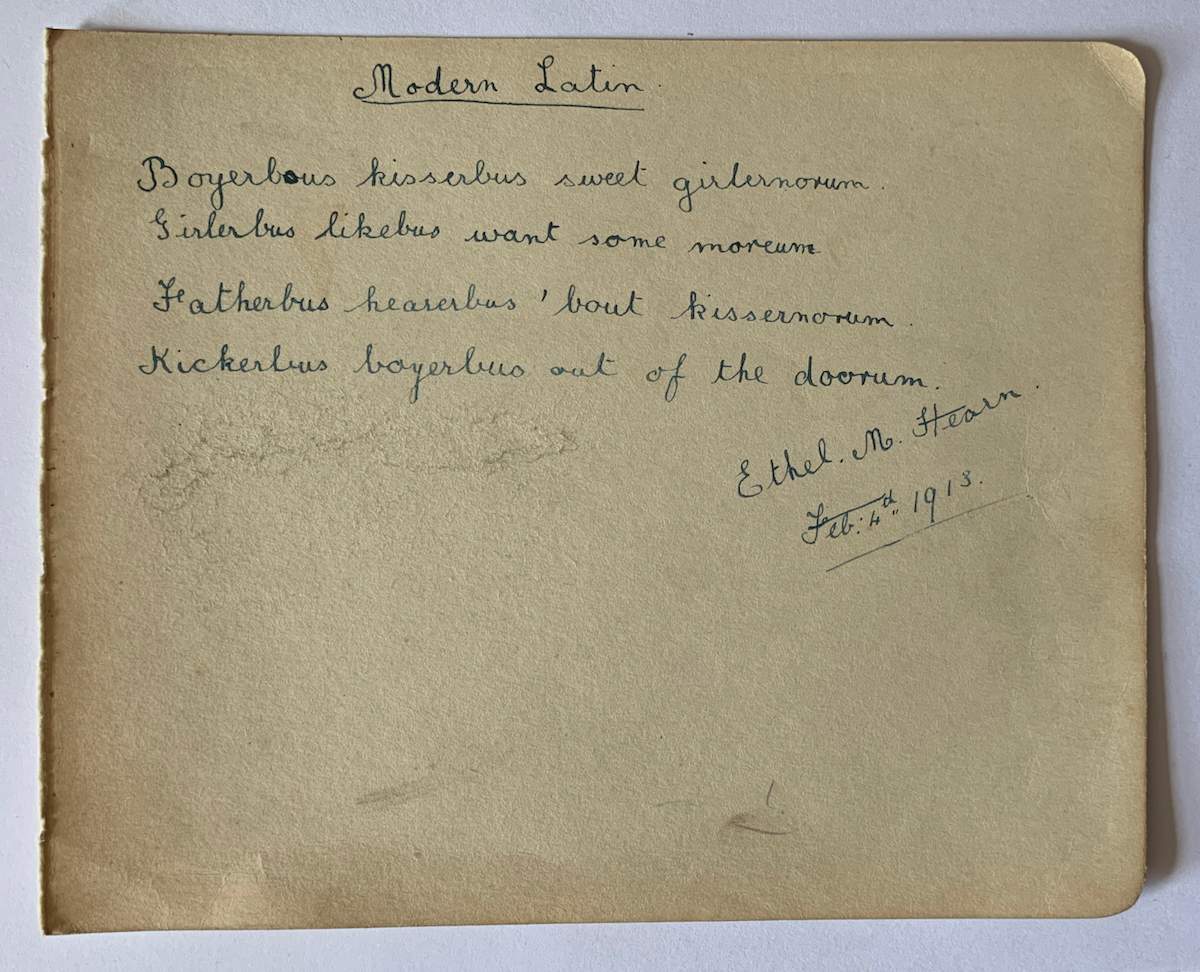 Modern Latin.
Boyerbous kisserbus sweet girlernorum.
Girlerbus likebus want some moreum
Fatherbus hearerbus 'bout kissernorum.
Kickerbus boyerbus out of the doorum.
Ethel. M. Hearn.
Feb: 4th 1913.